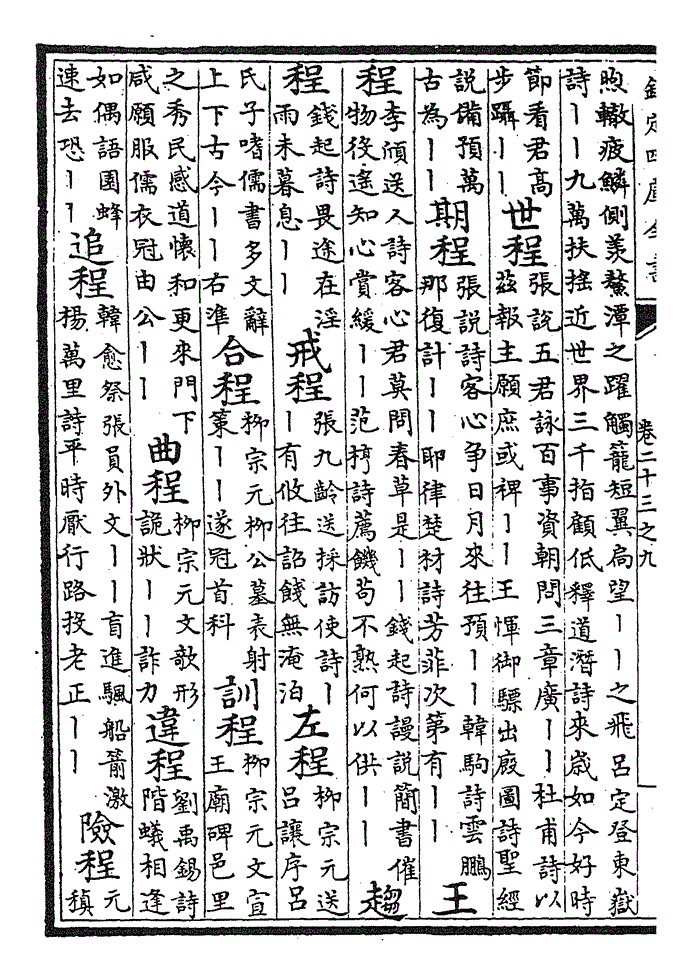 欽定四庫全書
卷二十三之九
煦轍疲鱗側羨鰲潭之躍觸籠短翼扃望丨丨之飛呂定登東嶽
詩丨丨九萬扶搖近世界三千指顧低釋道潛詩來歲如今好時
節看君高
步躡丨丨
世程
張說五君詠百事資朝問三章廣丨丨杜甫詩以
茲報主願庶或裨丨丨王惲御驃出廐圖詩聖經
說備預萬
古為丨丨
期程
張說詩客心爭日月來往預丨丨韓駒詩雲鵬
那復計丨丨耶律楚材詩芳菲次第有丨丨
王
程
李頎送人詩客心君莫問春草是丨丨錢起詩謾說簡書催
物役遙知心賞緩丨丨范梈詩薦饑苟不熟何以供丨丨
趨
程
錢起詩畏途在淫
雨未暮息丨丨
戒程
張九齡送採訪使詩丨
丨有攸往詔餞無淹泊
左程
柳宗元送
呂讓序呂
氏子嗜儒書多文辭
上下古今丨丨右準
合程
柳宗元柳公墓表射
策丨丨遂冠首科
訓程
柳宗元文宣
王廟碑邑里
之秀民感道懷和更來門下
咸願服儒衣冠由公丨丨
曲程
柳宗元文欹形
詭狀丨丨詐力
違程
劉禹錫詩
階蟻相逢
如偶語園蜂
速去恐丨丨
追程
韓愈祭張員外文丨丨盲進颿船箭激
楊萬里詩平時厭行路投老正丨丨
險程
元
稹